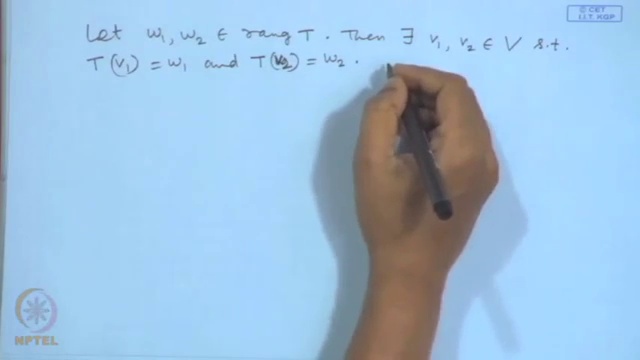 © CET
I.I.T. KGP
Let w₁, w₂ ∈ rang T. Then ∃ v₁, v₂ ∈ V s.t.
T(v₁) = w₁ and T(v₂) = w₂.
NPTEL